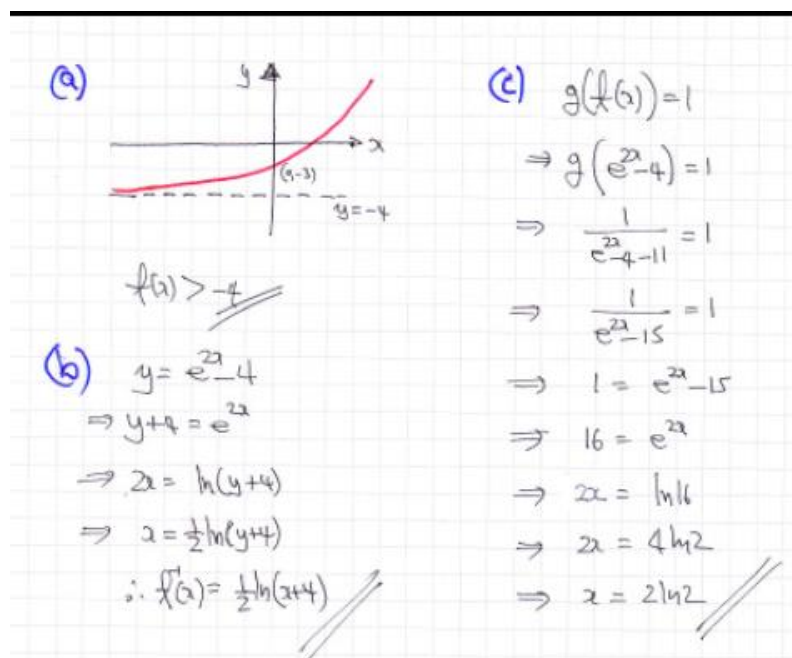 (a)
y
x
(0,-3)
y=-4
f(x) > -4
(b) y = e^{2x}-4
⇒ y+4 = e^{2x}
⇒ 2x = ln(y+4)
⇒ x = ½ln(y+4)
∴ f⁻¹(x) = ½ln(x+4)
(c) g(f(x)) = 1
⇒ g(e^{2x}-4) = 1
⇒ 1/(e^{2x}-4-11) = 1
⇒ 1/(e^{2x}-15) = 1
⇒ 1 = e^{2x}-15
⇒ 16 = e^{2x}
⇒ 2x = ln16
⇒ 2x = 4ln2
⇒ x = 2ln2